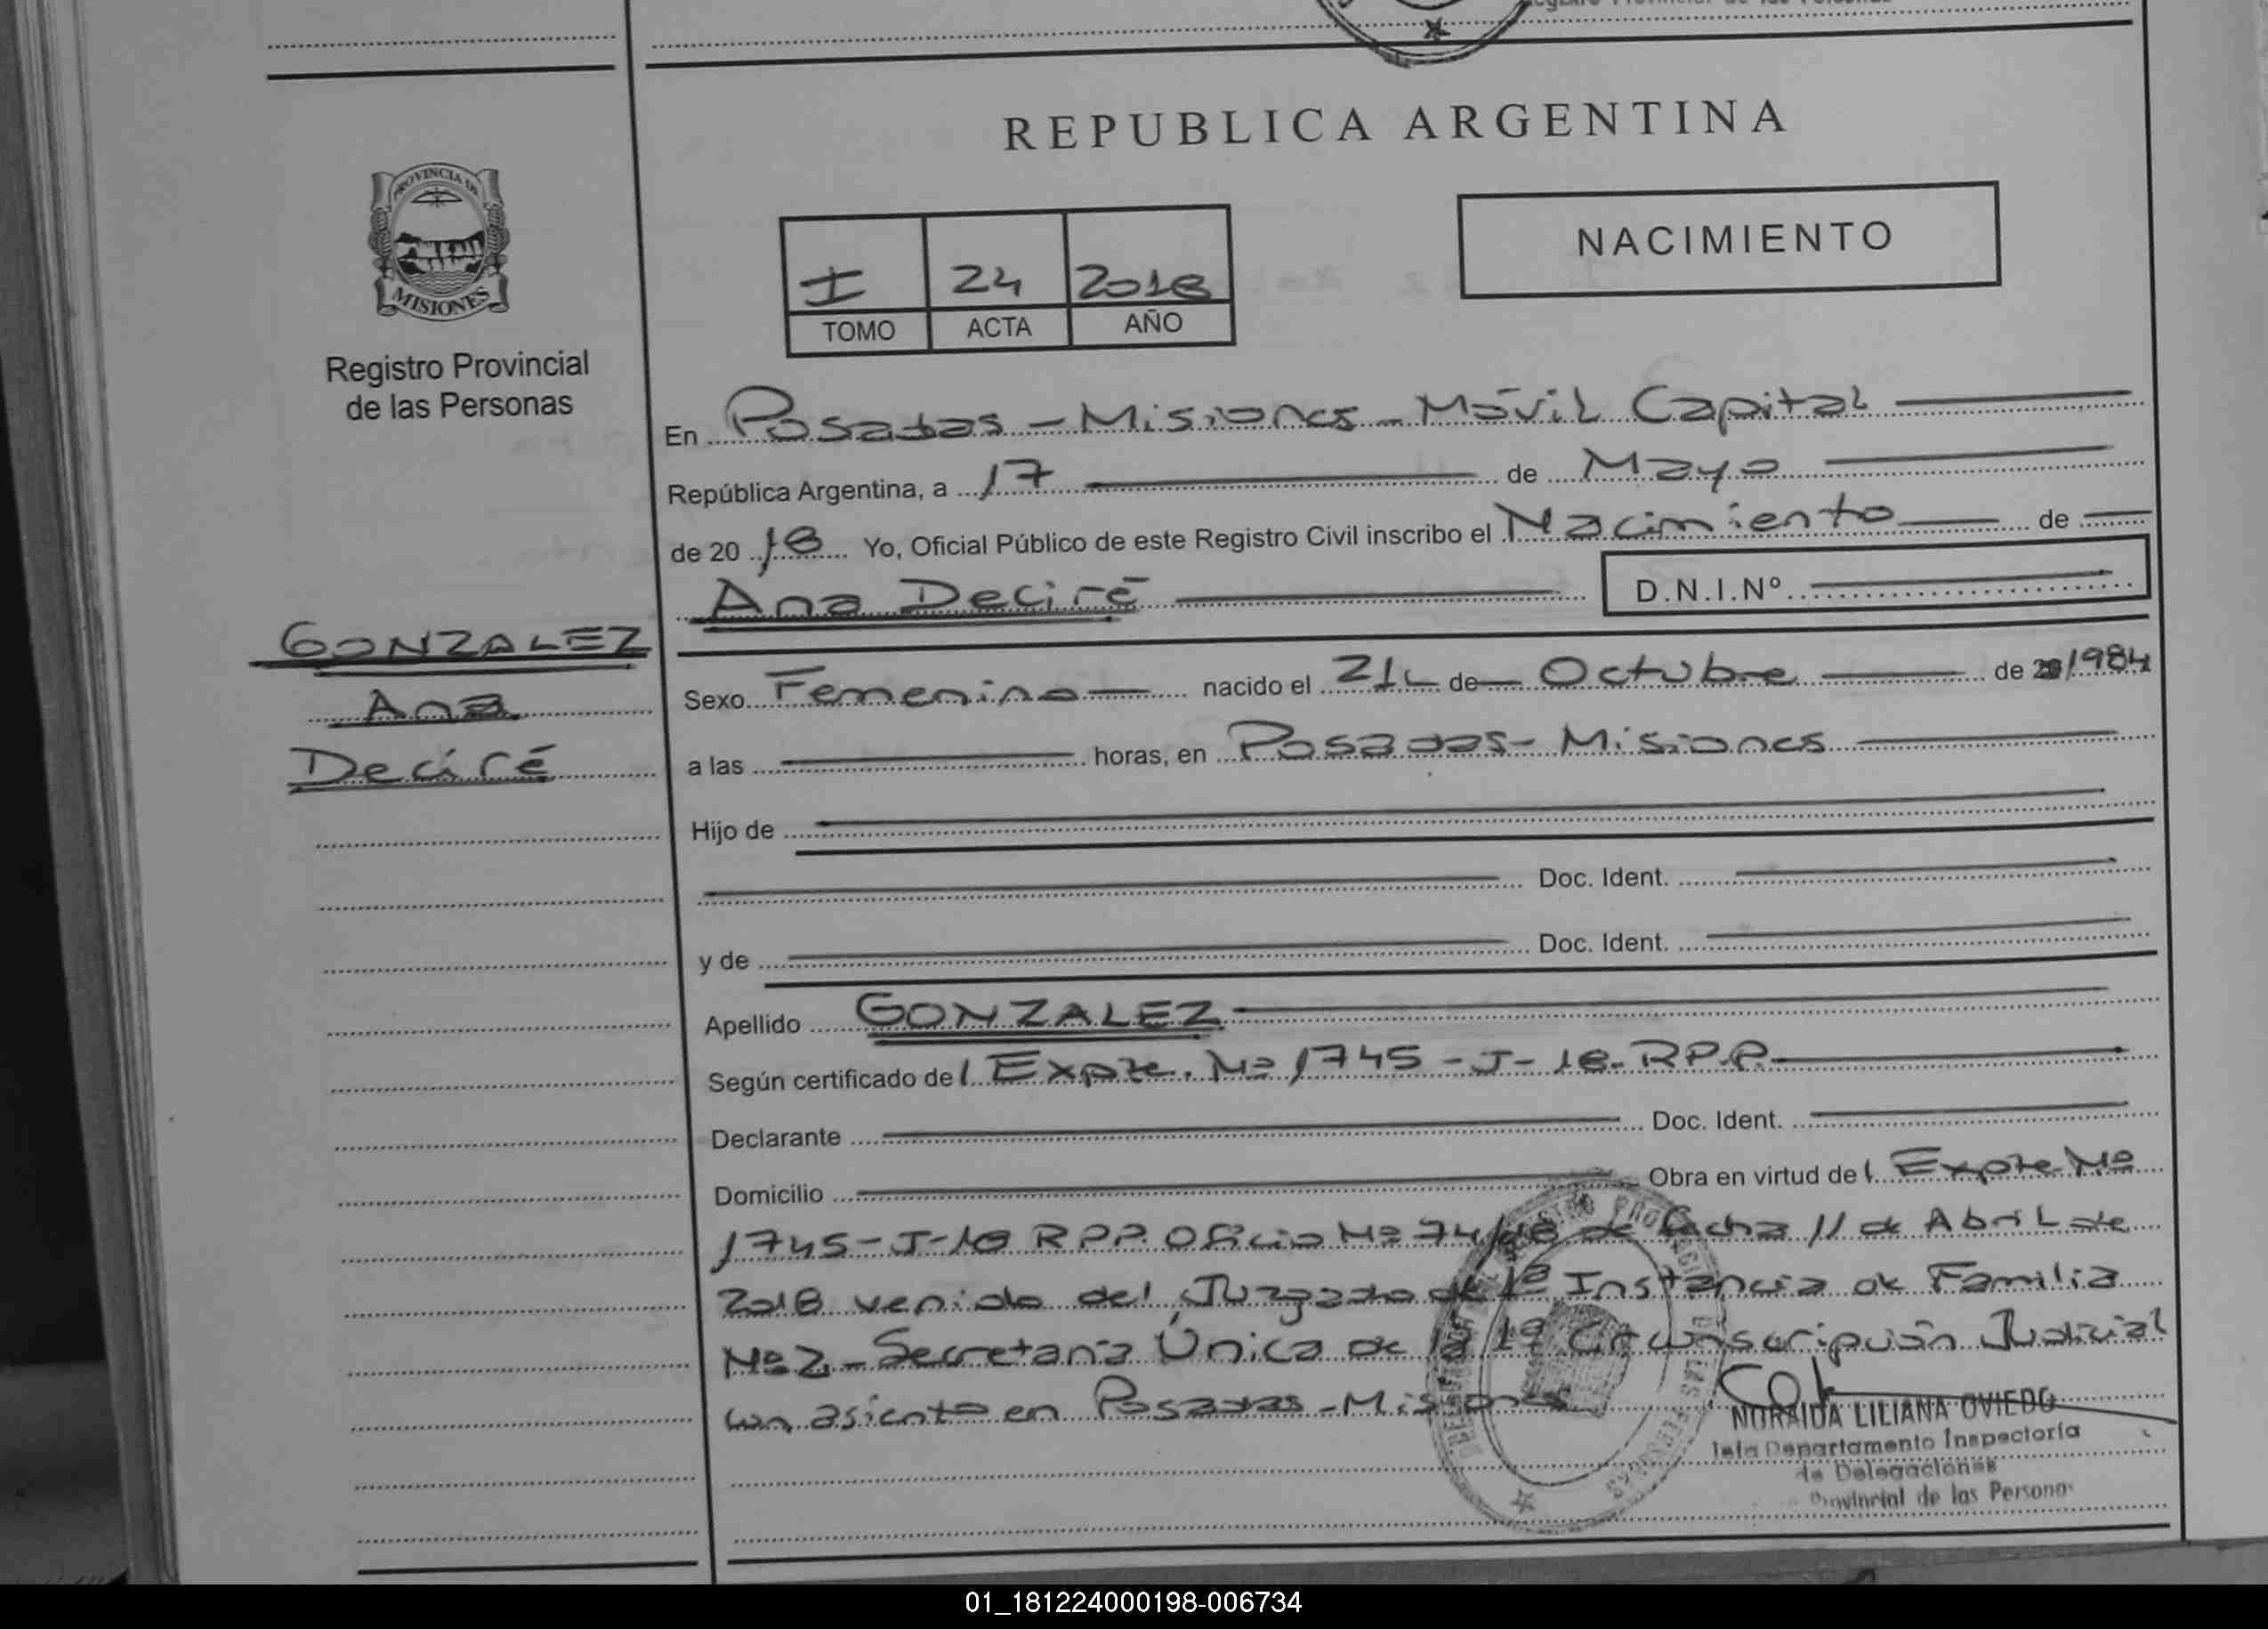 REPUBLICA ARGENTINA
PROVINCIA DE
MISIONES
Registro Provincial
de las Personas
NACIMIENTO
I 24 2018
TOMO ACTA AÑO
En Posadas - Misiones - Móvil Capital
República Argentina, a 17 de Mayo
de 20 18 Yo, Oficial Público de este Registro Civil inscribo el Nacimiento de
Ana Deciré
D.N.I.Nº
GONZALEZ
Ana
Deciré
Sexo Femenino nacido el 21 de Octubre de 1984
a las horas, en Posadas - Misiones
Hijo de
Doc. Ident.
y de Doc. Ident.
Apellido GONZALEZ
Según certificado del Expte. Nº 1745 - J - 18 - R.P.P.
Declarante Doc. Ident.
Domicilio Obra en virtud del Expte Nº
1745 - J - 18 R P P Oficio Nº 74/18 de fecha 11 de Abril de
2018 venido del Juzgado de 1ª Instancia de Familia
Nº 2 - Secretaría Única de la 1ª Circunscripción Judicial
con asiento en Posadas - Misiones
NORAIDA LILIANA OVIEDO
Jefa Departamento Inspectoría
de Delegaciones
Provincial de las Personas
01_181224000198-006734